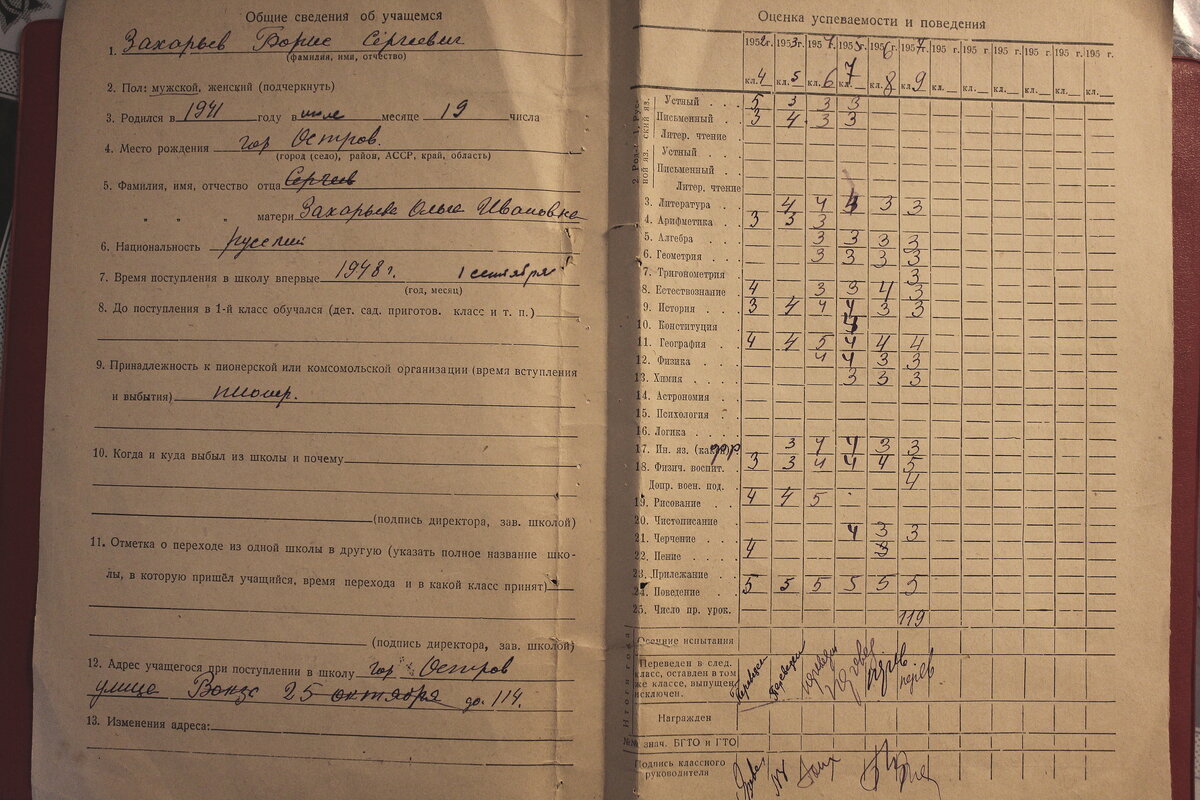 Общие сведения об учащемся
1. Захарьев Борис Сергеевич
(фамилия, имя, отчество)
2. Пол: мужской, женский (подчеркнуть)
3. Родился в 1941 году в июле месяце 19 числа
4. Место рождения гор Остров.
(город (село), район, АССР, край, область)
5. Фамилия, имя, отчество отца Сергеев
" " " матери Захарьева Ольга Ивановна
6. Национальность русский
7. Время поступления в школу впервые 1948 г. 1 сентября
(год, месяц)
8. До поступления в 1-й класс обучался (дет. сад. приготов. класс и т. п.)
9. Принадлежность к пионерской или комсомольской организации (время вступления
и выбытия) пионер.
10. Когда и куда выбыл из школы и почему
(подпись директора, зав. школой)
11. Отметка о переходе из одной школы в другую (указать полное название шко-
лы, в которую пришёл учащийся, время перехода и в какой класс принят)
(подпись директора, зав. школой)
12. Адрес учащегося при поступлении в школу гор Остров
улица 25 октября д. 114.
13. Изменения адреса:
Оценка успеваемости и поведения
1952г. 1953г. 1957г. 195 г. 1956г. 1957г. 195 г. 195 г. 195 г. 195 г. 195 г. 195 г.
кл.4 кл.5 кл.6 кл.7 кл.8 кл.9 кл. кл. кл. кл. кл. кл.
1. Рус-
ский яз.
Устный 5 3 3 3
Письменный 3 4 3 3
Литер. чтение
2. Род-
ной яз.
Устный
Письменный
Литер. чтение
3. Литература 4 4 4 3 3
4. Арифметика 3 3 3
5. Алгебра 3 3 3 3
6. Геометрия 3 3 3 3
7. Тригонометрия 3
8. Естествознание 4 3 3 4 3
9. История 3 4 4 4 3 3
10. Конституция
11. География 4 4 5 4 4 4
12. Физика 4 4 3 3
13. Химия 3 3 3
14. Астрономия
15. Психология
16. Логика
17. Ин. яз. (какой) 3 4 4 3 3
18. Физич. воспит. 3 3 4 4 4 5
Допр. воен. под. 4
19. Рисование 4 4 5
20. Чистописание
21. Черчение 4 3 3
22. Пение 4 3
23. Прилежание
24. Поведение 5 5 5 5 5 5
25. Число пр. урок. 119
Итоги года
Осенние испытания
Переведен в след.
класс, оставлен в том
же классе, выпущен,
исключен.
Переведен Переведен перев.
Награжден
знач. БГТО и ГТО
Подпись классного
руководителя